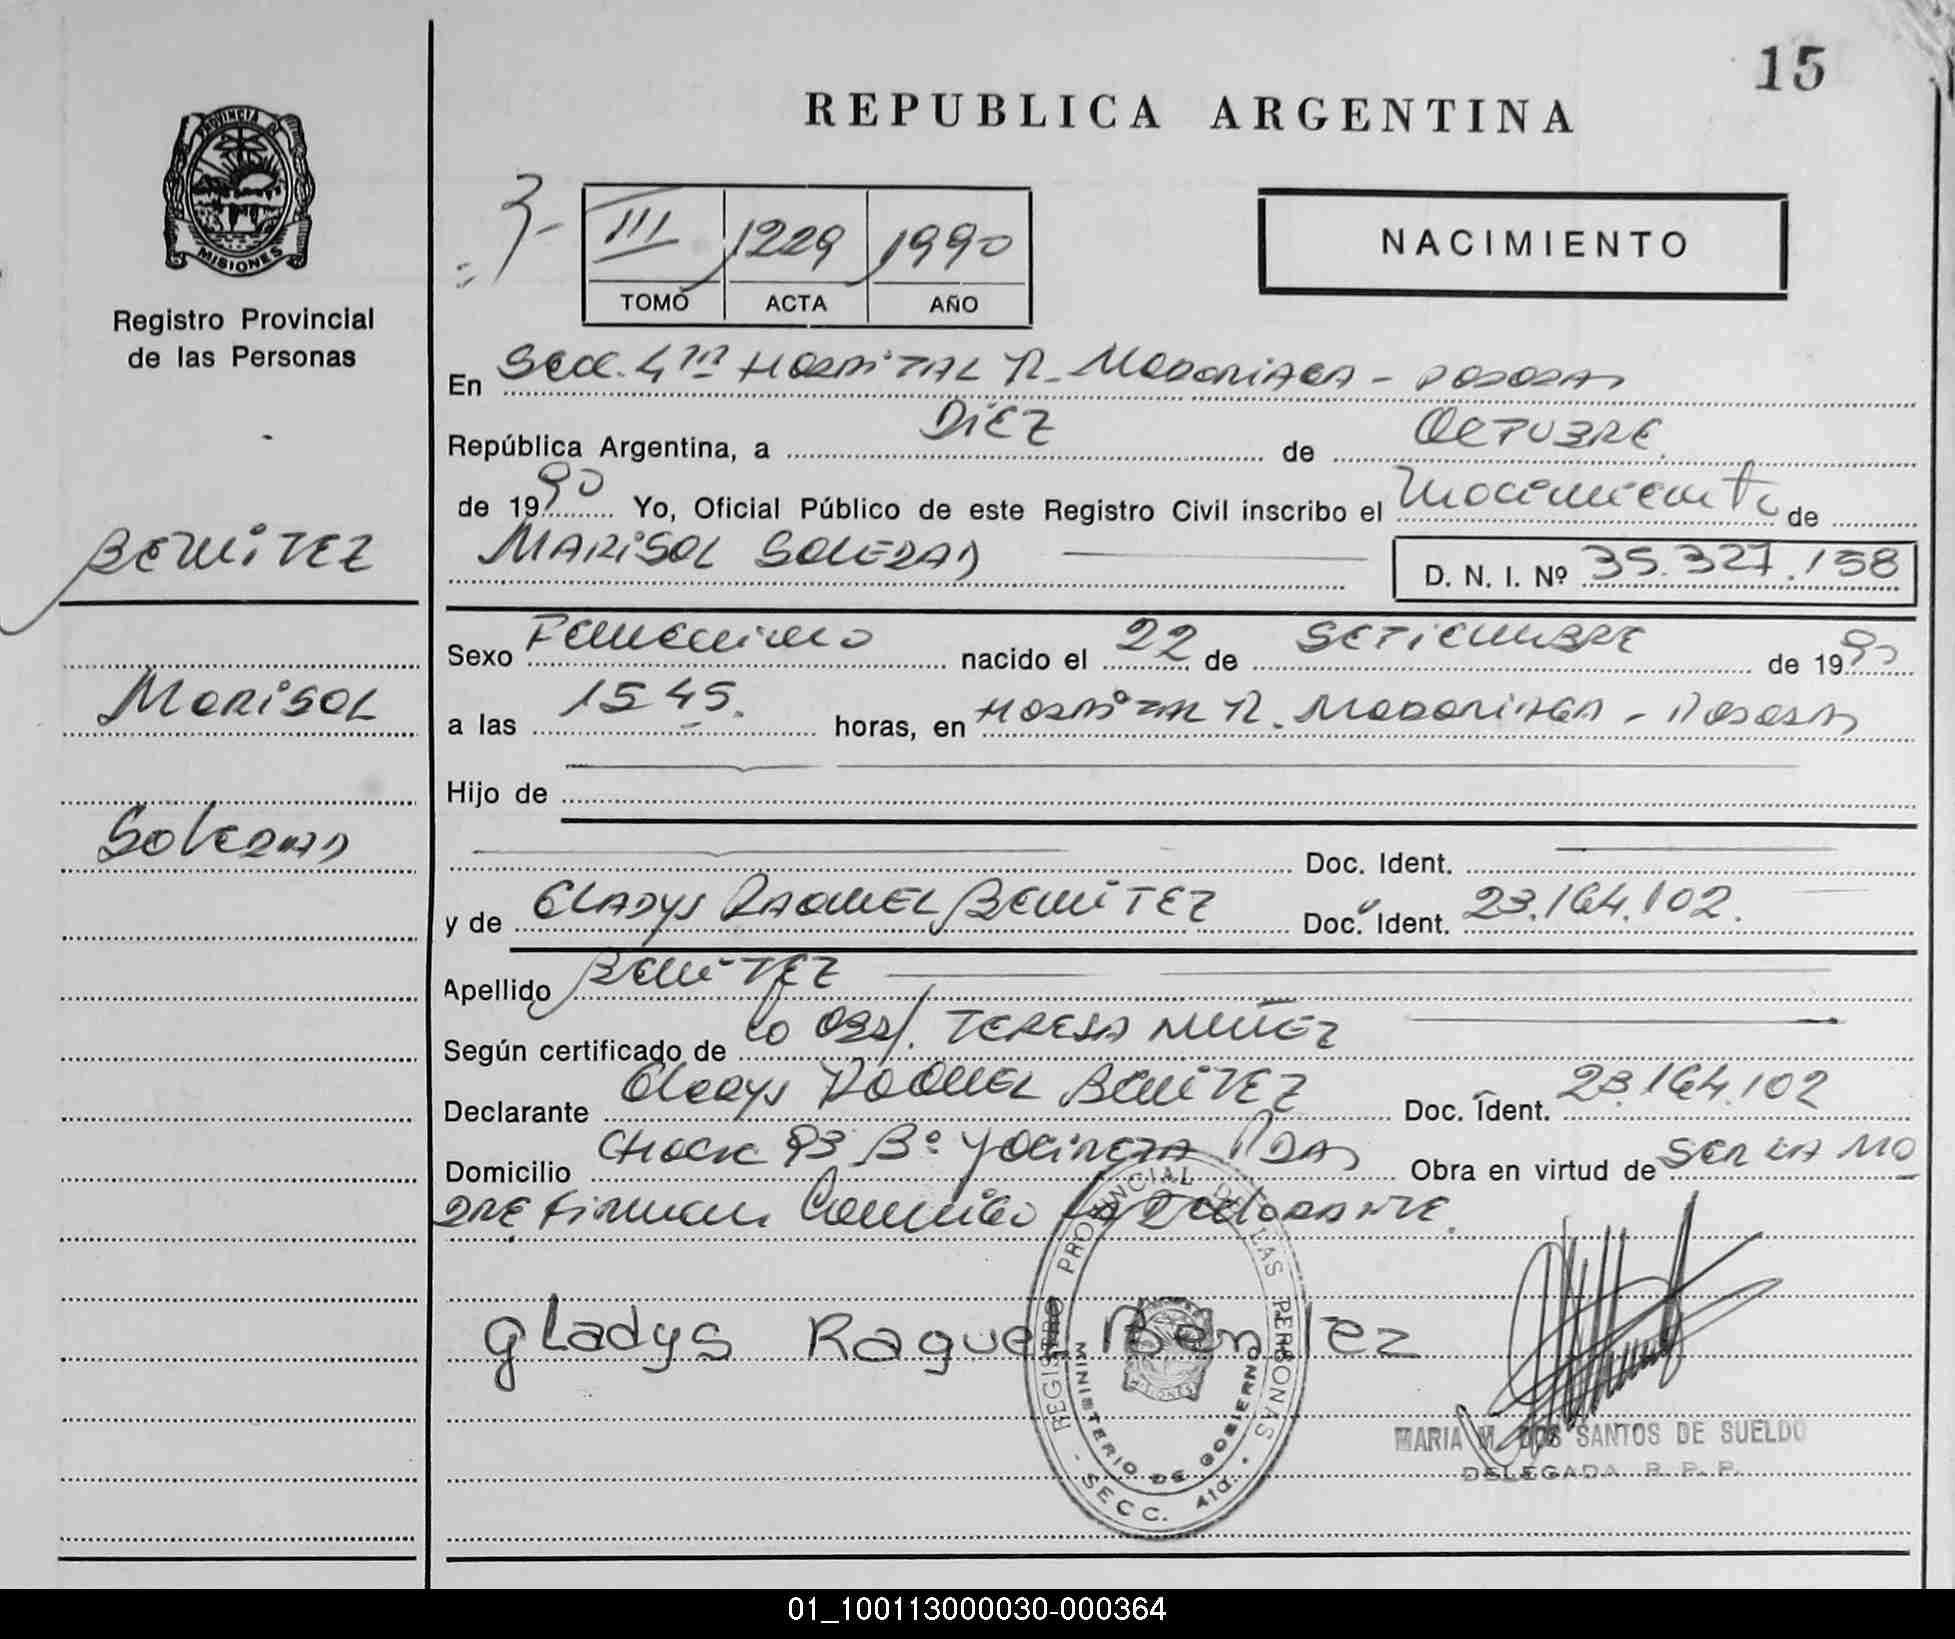 15
REPUBLICA ARGENTINA
PROVINCIA DE
MISIONES
Registro Provincial
de las Personas
III 1229 1990
TOMO ACTA AÑO
NACIMIENTO
En Secc. 4ta HOSPITAL R. MADARIAGA - POSADAS
República Argentina, a DIEZ de OCTUBRE
de 1990 Yo, Oficial Público de este Registro Civil inscribo el nacimiento de
MARISOL SOLEDAD D. N. I. Nº 35.327.158
BENITEZ
MARISOL
SOLEDAD
Sexo Femenino nacido el 22 de SETIEMBRE de 1990
a las 15 45. horas, en HOSPITAL R. MADARIAGA - POSADAS
Hijo de
Doc. Ident.
y de GLADYS RAQUEL BENITEZ Doc. Ident. 23.164.102.
Apellido BENITEZ
Según certificado de la Obst. TERESA NUÑEZ
Declarante Gladys RAQUEL BENITEZ Doc. Ident. 23.164.102
Domicilio 93 Bº YACIRETA PDAS Obra en virtud de SER LA MA
DRE Firman Conmigo la DeclARANTE.
gladys Raquel Benitez
REGISTRO PROVINCIAL DE LAS PERSONAS
MINISTERIO DE GOBIERNO
- SECC. 4ta. -
MISIONES
MARIA M. DOS SANTOS DE SUELDO
DELEGADA R. P. P.
01_100113000030-000364